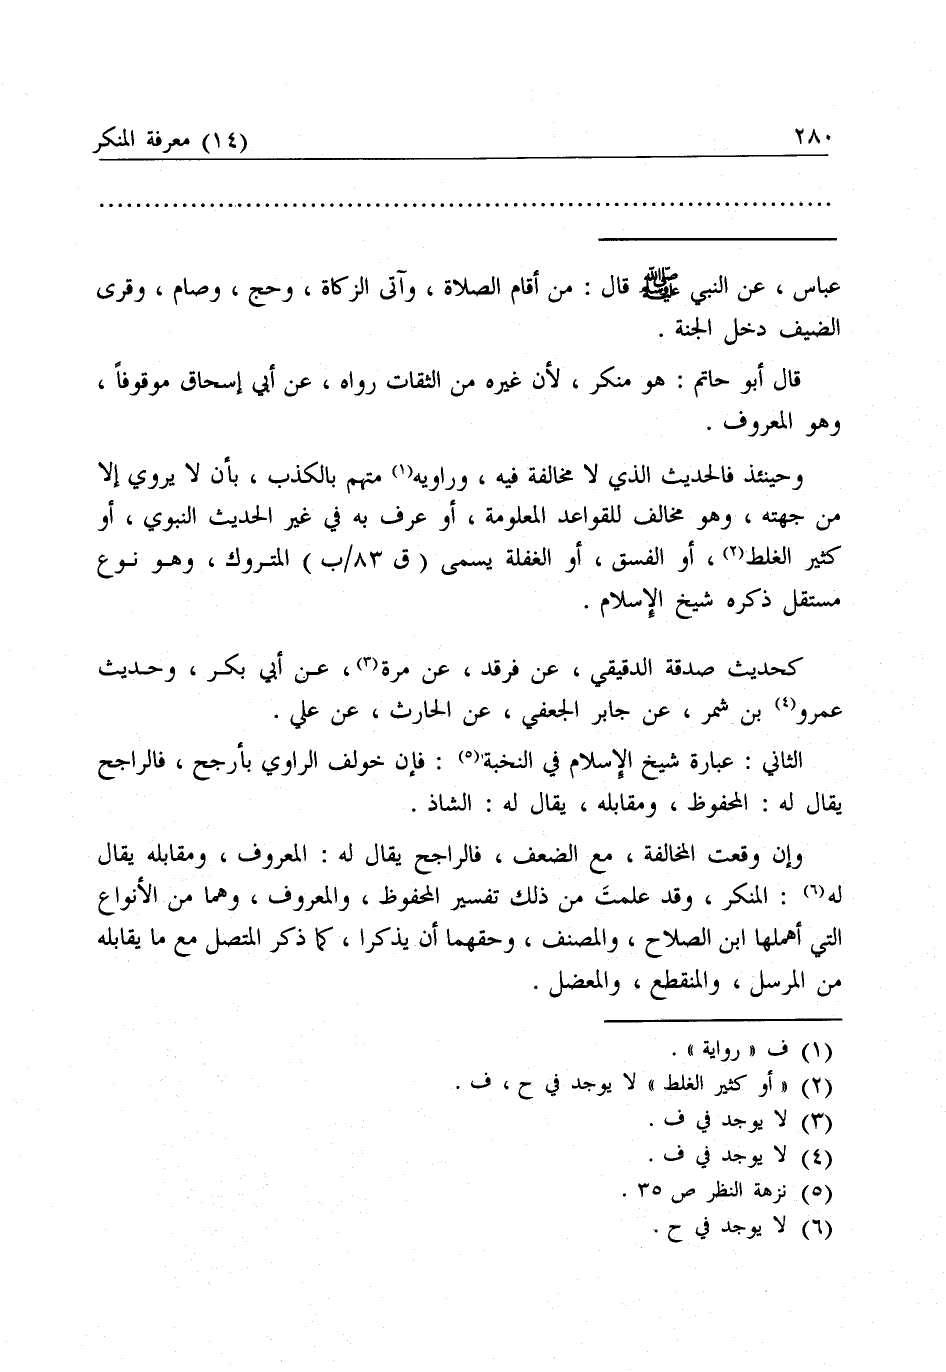 ٢٨٠
(١٤) معرفة المنكر
................................................................................
عباس ، عن النبي ﷺ قال : من أقام الصلاة ، وآتى الزكاة ، وحج ، وصام ، وقرى
الضيف دخل الجنة .
قال أبو حاتم : هو منكر ، لأن غيره من الثقات رواه ، عن أبي إسحاق موقوفاً ،
وهو المعروف .
وحينئذ فالحديث الذي لا مخالفة فيه ، وراويه(١) متهم بالكذب ، بأن لا يروي إلا
من جهته ، وهو مخالف للقواعد المعلومة ، أو عرف به في غير الحديث النبوي ، أو
كثير الغلط(٢) ، أو الفسق ، أو الغفلة يسمى ( ق ٨٣/ب ) المتروك ، وهو نوع
مستقل ذكره شيخ الإسلام .
كحديث صدقة الدقيقي ، عن فرقد ، عن مرة(٣) ، عن أبي بكر ، وحديث
عمرو(٤) بن شمر ، عن جابر الجعفي ، عن الحارث ، عن علي .
الثاني : عبارة شيخ الإسلام في النخبة(٥) : فإن خولف الراوي بأرجح ، فالراجح
يقال له : المحفوظ ، ومقابله ، يقال له : الشاذ .
وإن وقعت المخالفة ، مع الضعف ، فالراجح يقال له : المعروف ، ومقابله يقال
له(٦) : المنكر ، وقد علمتَ من ذلك تفسير المحفوظ ، والمعروف ، وهما من الأنواع
التي أهملها ابن الصلاح ، والمصنف ، وحقهما أن يذكرا ، كما ذكر المتصل مع ما يقابله
من المرسل ، والمنقطع ، والمعضل .
(١) ف « رواية » .
(٢) « أو كثير الغلط » لا يوجد في ح ، ف .
(٣) لا يوجد في ف .
(٤) لا يوجد في ف .
(٥) نزهة النظر ص ٣٥ .
(٦) لا يوجد في ح .